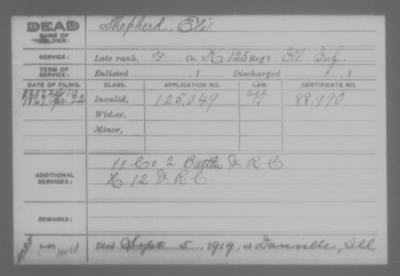 DEAD
NAME OF
SOLDIER:
Shepherd, Eli
SERVICE:
Late rank, P Co. K 125 Reg't Ill Inf
TERM OF
SERVICE:
Enlisted , 1 Discharged , 1
DATE OF FILING. CLASS. APPLICATION NO. LAW. CERTIFICATE NO.
1869 Apr 22 Invalid, 125,349 88,790
Widow,
Minor,
ADDITIONAL
SERVICES:
11 Co 2 Battln V R C
K 12 V. R C.
REMARKS:
Died Sept 5, 1919, at Danville, Ill